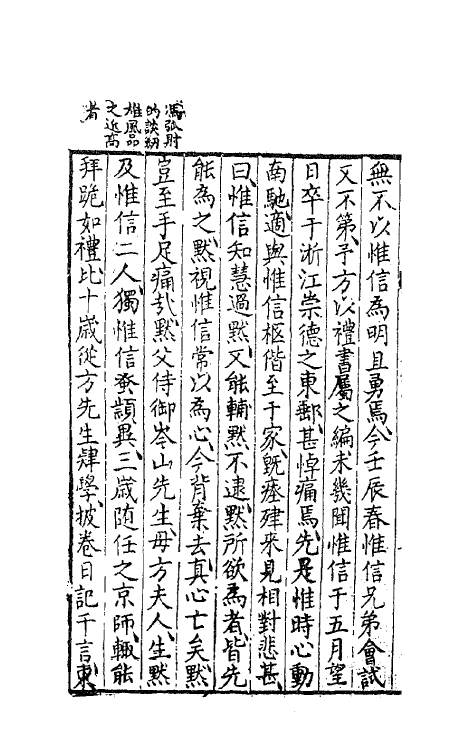 無不以惟信為明且勇焉今壬辰春惟信兄弟會試
又不第予方以禮書屬之編未幾聞惟信于五月望
日卒于浙江崇德之東郵甚悼痛焉先是惟時心動
南馳適與惟信柩偕至于家既瘞肂來見相對悲甚
曰惟信知慧過黙又能輔黙不逮黙所欲為者皆先
能為之黙視惟信常以為心今背棄去真心亡矣黙
豈至手足痛哉黙父侍御岑山先生母方夫人生黙
及惟信二人獨惟信蚤顓異三歲随任之京師輙能
拜跪如禮比十歲從方先生肄學披卷日記千言東
馮弧尉
的談網
雄風品
之近高
者